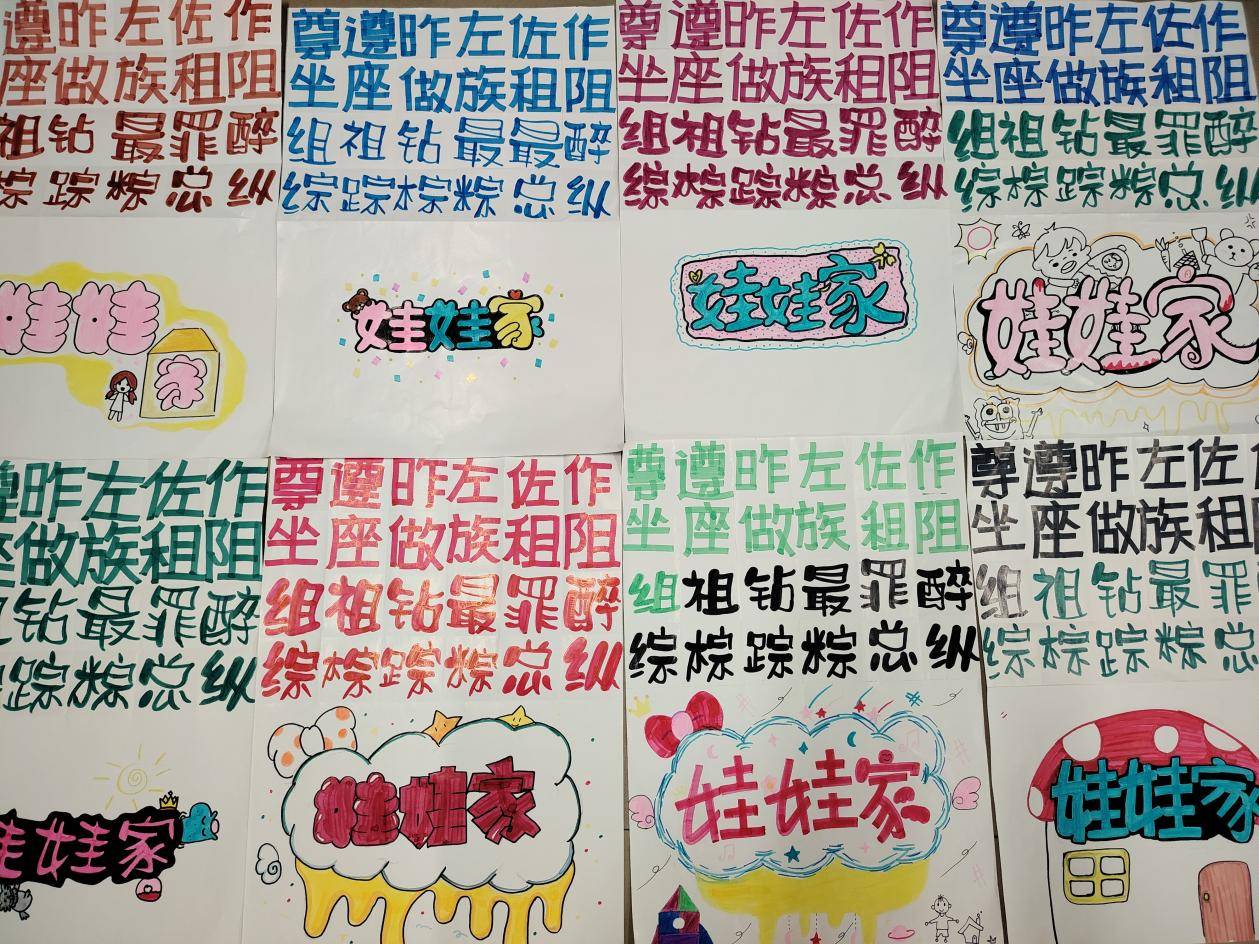 遵昨左佐作
座做族租阻
祖钻最罪醉
踪粽总纵
娃娃
家
尊遵昨左佐作
坐座做族租阻
组祖钻最最醉
综踪棕粽总纵
娃娃家
尊遵昨左佐作
坐座做族租阻
组祖钻最罪醉
综棕踪粽总纵
娃娃家
尊遵昨左佐作
坐座做族租阻
组祖钻最罪醉
综棕踪粽总纵
娃娃家
遵昨左佐作
做族租阻
钻最罪醉
踪粽总纵
娃娃家
尊遵昨左佐作
坐座做族租阻
组祖钻最罪醉
综棕踪粽总纵
娃娃家
尊遵昨左佐作
坐座做族租阻
组祖钻最罪醉
综棕踪粽总纵
娃娃家
尊遵昨左佐
坐座做族租
组祖钻最罪
综棕踪粽总
娃娃家